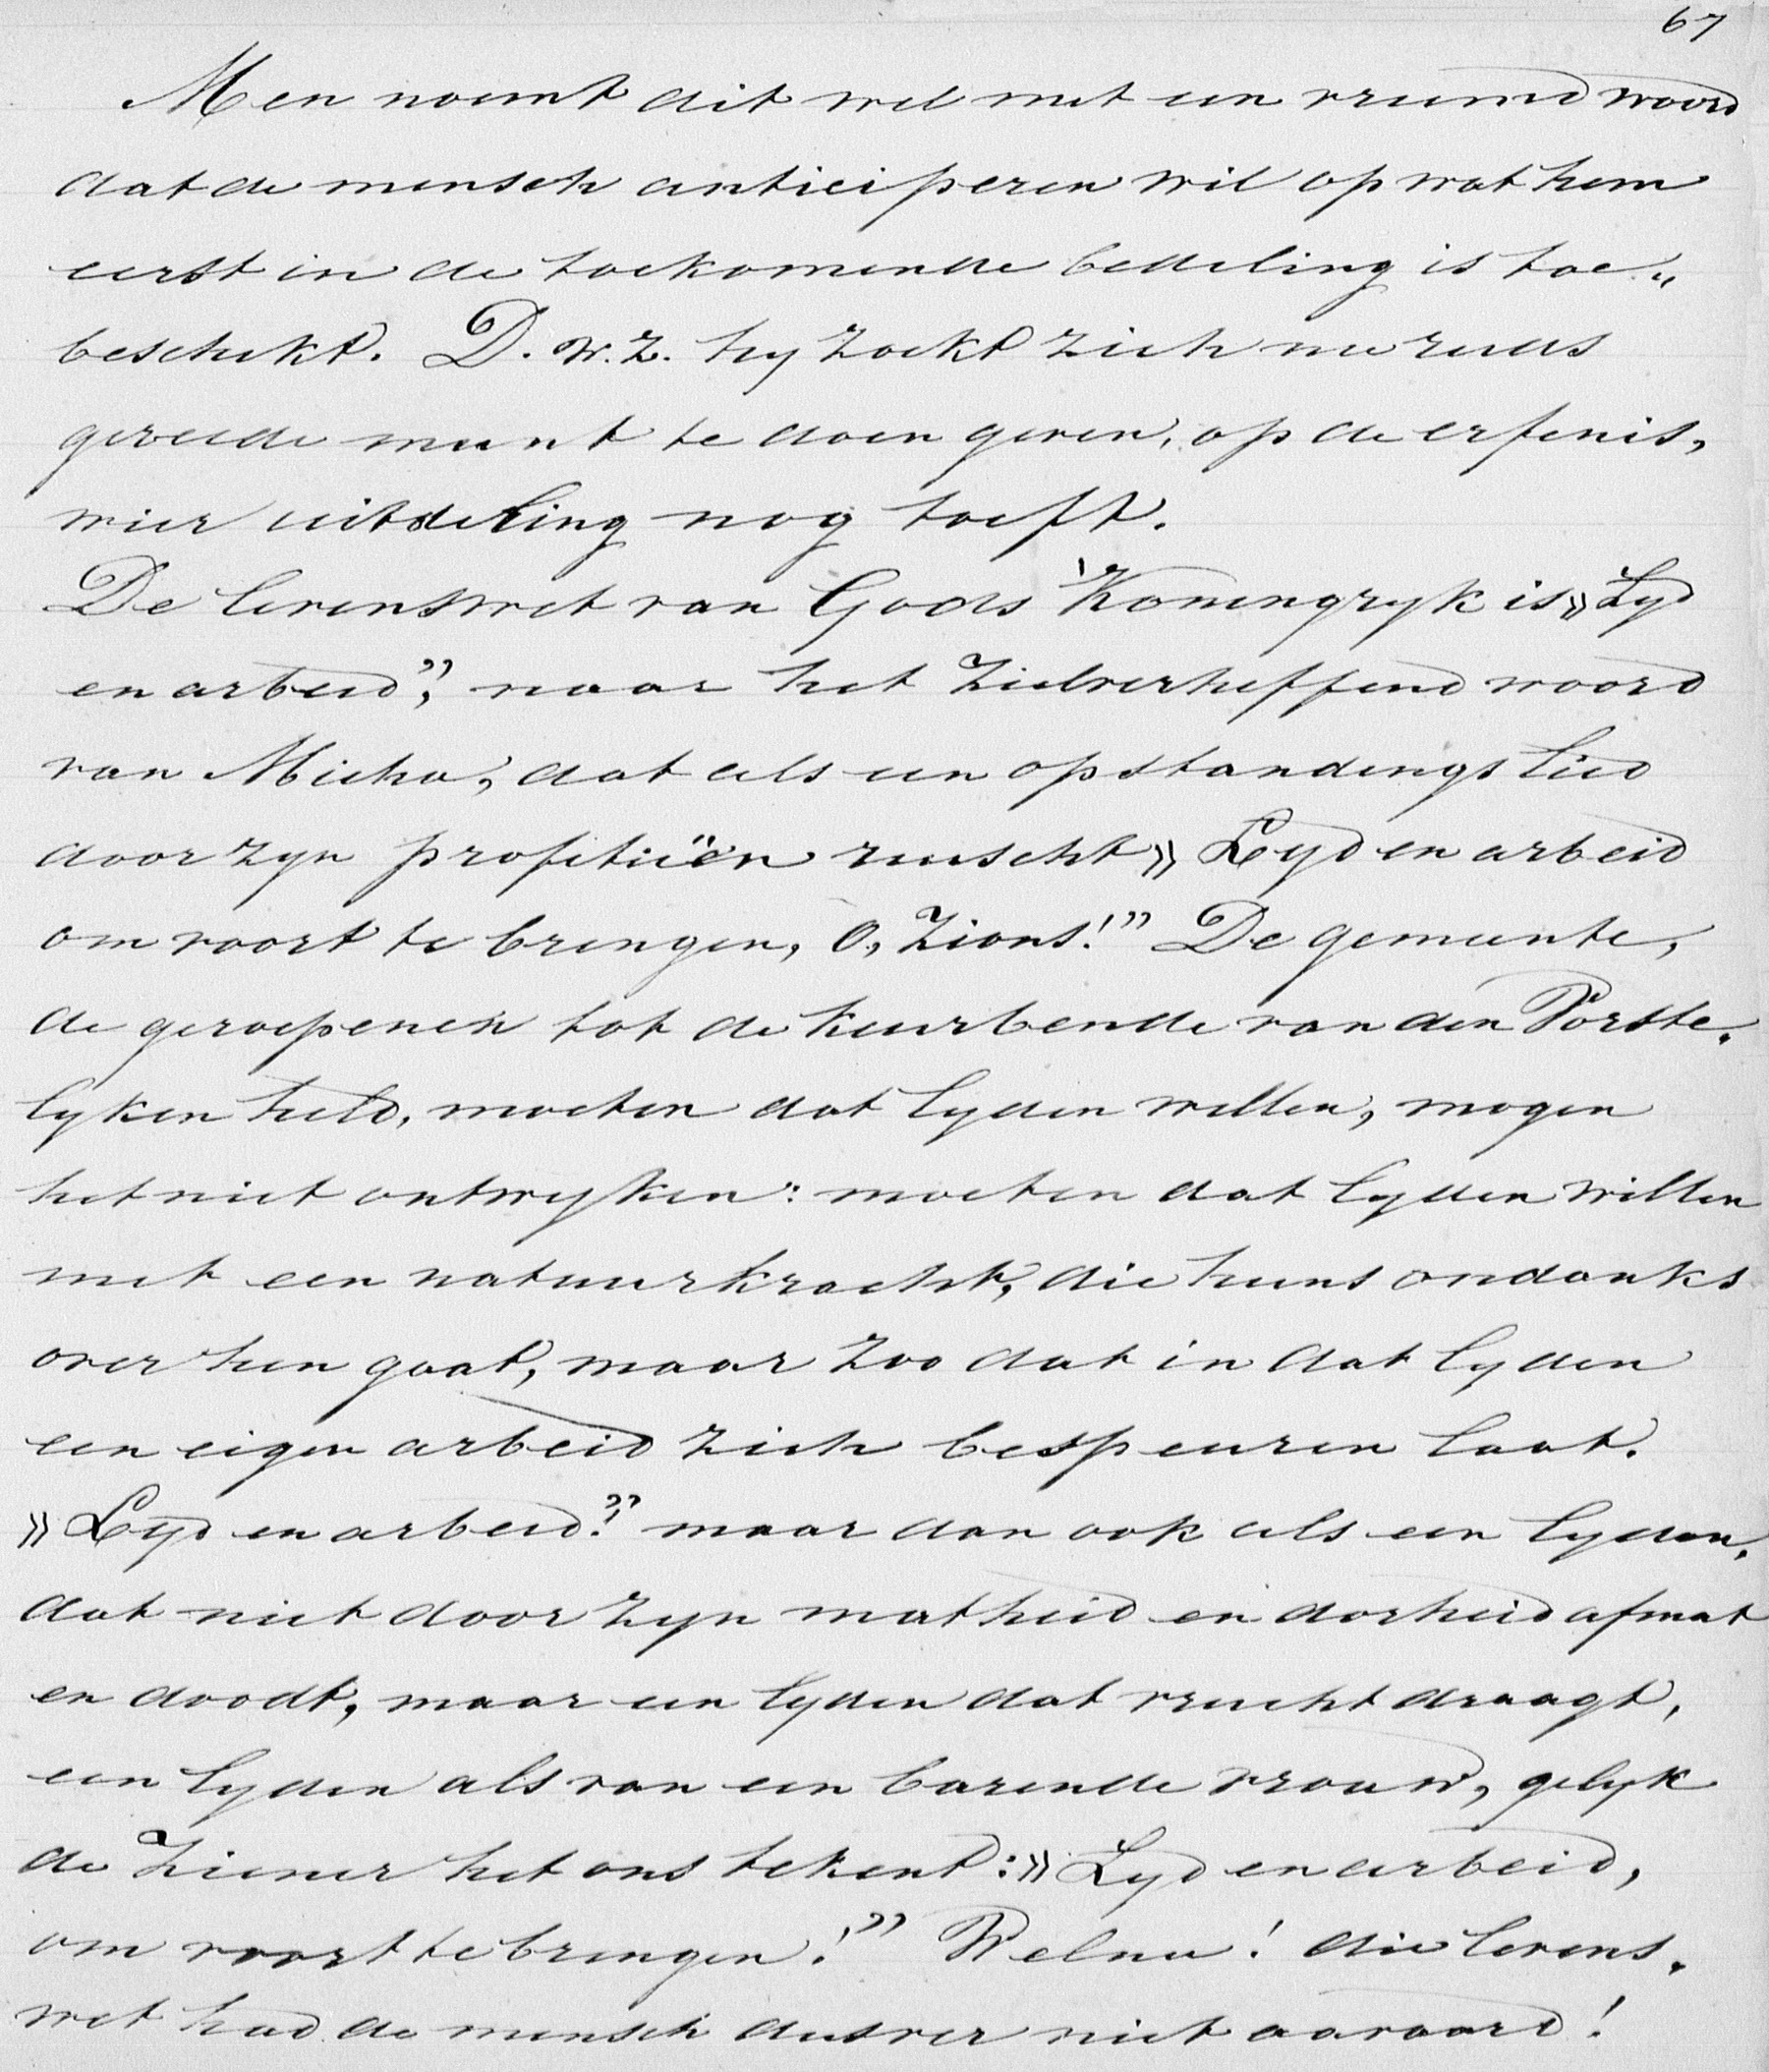 67
Men noemt dit wel met een vreemd woord
dat de mensch anticiperen wil op wat hem
eerst in de toekomende bedeling is toe„
beschikt. D. w. z. hy zoekt zich nu reeds
gereede munt te doen geven, op de erfenis,
wier uitdeling nog toeft.
De levenswet van Gods Koningryk is » Lyd
en arbeid”, naar het zielverheffend woord
van Micha, dat als een opstandingslied
door zyn profetieën ruischt » Lyd en arbeid
om voort te brengen, O, Zions!” De gemeente,
de geroepenen tot de keurbende van den Vorste.
lyken held, moeten dat lyden willen, mogen
het niet ontwyken: moeten dat lyden willen
met een natuurkracht, die huns ondanks
over hen gaat, maar zoo dat in dat lyden
een eigen arbeid zich bespeuren laat.
» Lyd en arbeid!” maar dan ook als een lyden,
dat niet door zyn matheid en dorheid afmat
en doodt, maar een lyden dat vrucht draagt,
een lyden als van een barende vrouw, gelyk
de Ziener het ons tekent: » Lyd en arbeid,
om voort te brengen!” Welnu! die levens.
wet had de mensch dusver niet aanvaard!